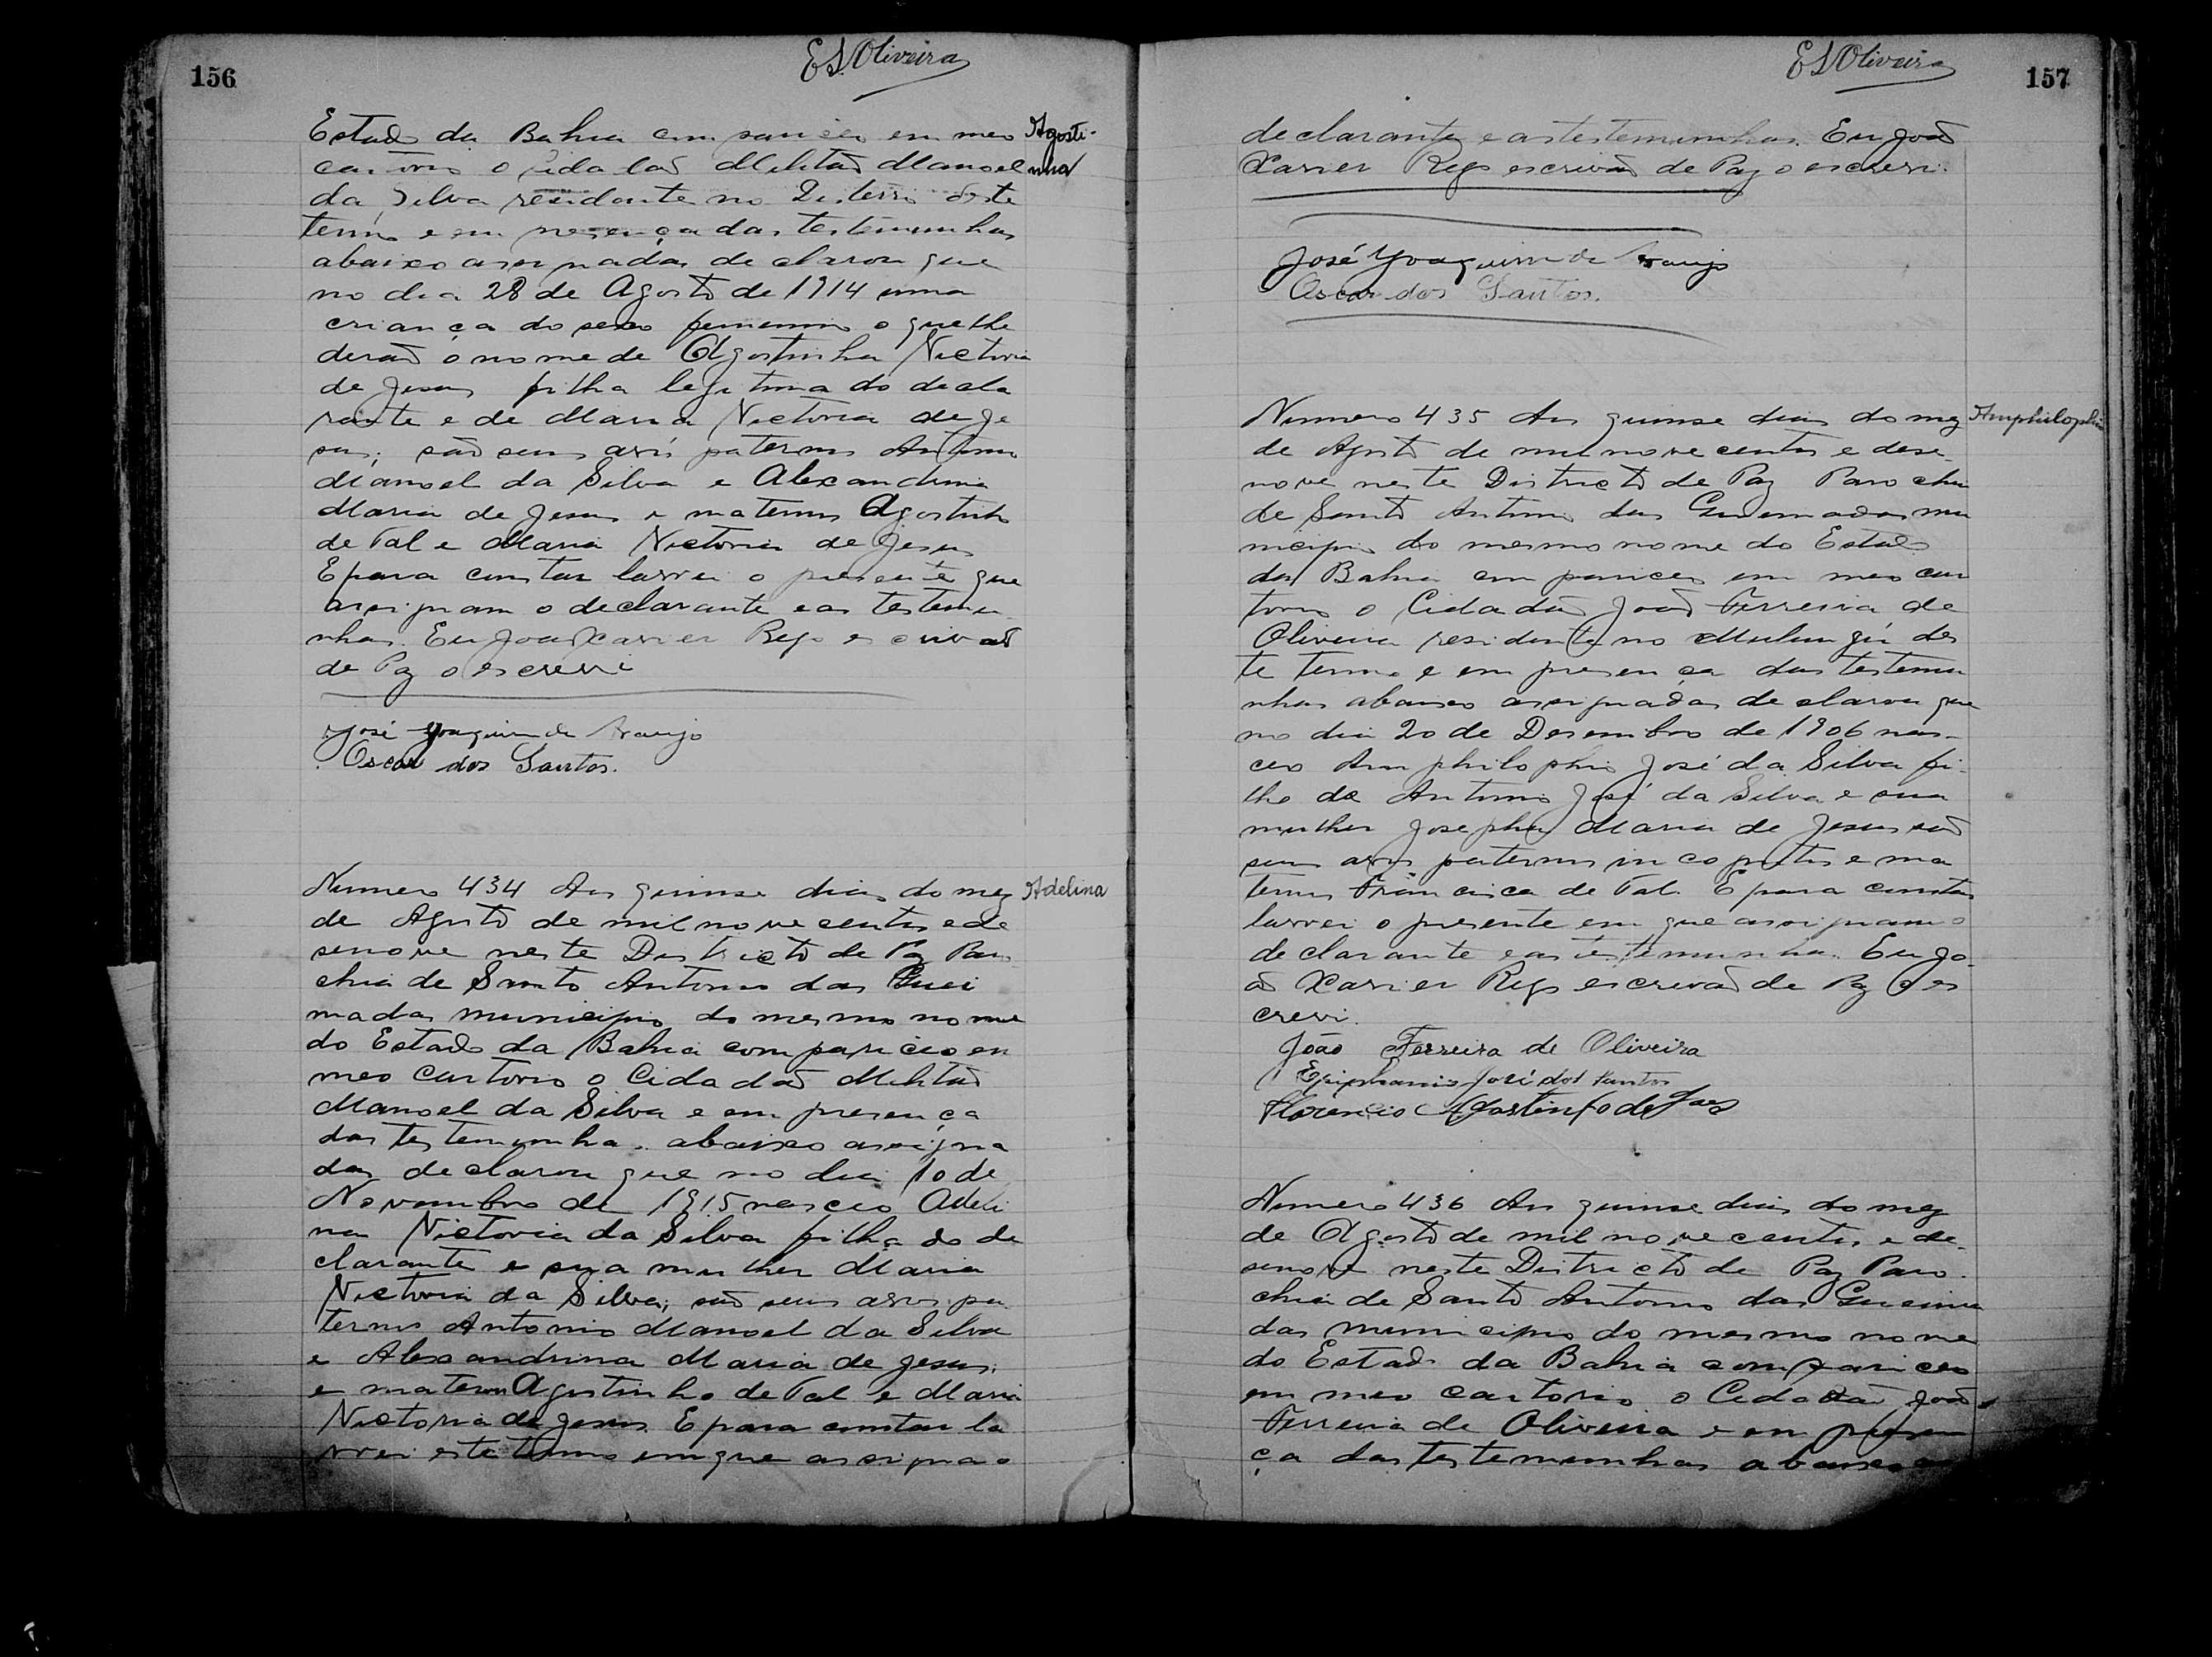 156
E S Oliveira
Estado da Bahia compariceo em meo
Agosti-
nha
cartorio o Cidadaõ Militaõ Manoel
da Silva residente no Desterro deste
termo e em presença das testemunhas
abaixo assignadas declarou que
no dia 28 de Agosto de 1914 uma
criança do sexo feminino o que lhe
deraõ o nome de Agostinha Victoria
de Jesus filha legitima do decla
rante e de Maria Victoria de Je
sus; saõ seus avós paternos Antonio
Manoel da Silva e Alexandrina
Maria de Jesus e maternos Agostinho
de Tal e Maria Victoria de Jesus
E para constar lavrei o presente que
assignam o declarante e as testemu
nhas. Eu Joaõ Xavier Rego escrivaõ
de Paz o escrevi
José Joaquim de Araujo
Oscar dos Santos.
Numero 434 Aos quinse dias do mez
Adelina
de Agosto de mil nove centos e de
senove neste Districto de Paz Paro
chia de Santo Antonio das Quei
madas municipio do mesmo nome
do Estado da Bahia compariceo em
meo Cartorio o Cidadaõ Militaõ
Manoel da Silva e em presença
das testemunhas abaixo assigna
das declarou que no dia 10 de
Novembro de 1915 nasceo Adeli
na Victoria da Silva filha do de
clarante e sua mulher Maria
Victoria da Silva; saõ seus avos pa
ternos Antonio Manoel da Silva
e Alexandrina Maria de Jesus;
e maternos Agostinho de Tal e Maria
Victoria de Jesus. E para constar la
vrei este termo em que assigna o
157
E S Oliveira
declarante e as testemunhas. Eu Joaõ
Xavier Rego escrivaõ de Paz o escrevi.
José Joaquim de Araujo
Oscar dos Santos.
Numero 435 Aos quinse dias do mez
Amphilophio
de Agosto de mil nove centos e dese-
nove neste Districto de Paz Parochia
de Santo Antonio das Queimadas mu
nicipio do mesmo nome do Estado
da Bahia compariceo em meo car
torio o Cidadaõ Joaõ Ferreira de
Oliveira residente no Mulungú des
te termo e em presença das testemu
nhas abaixo assignadas declarou que
no dia 20 de Desembro de 1906 nas-
ceo Amphilophio José da Silva fi-
lho de Antonio José da Silva e sua
mulher Josepha Maria de Jesus saõ
seus avos paternos incognitos e ma
ternos Francisca de Tal. E para constar
lavrei o presente em que assignam o
declarante e as testemunhas. Eu Jo-
aõ Xavier Rego escrivaõ de Paz o es
crevi.
João Ferreira de Oliveira
Epiphanio José dos Santos
Florencio Agostinho de Goes
Numero 436 Aos quinse dias do mez
de Agosto de mil nove centos e de-
senove neste Districto de Paz Paro-
chia de Santo Antonio das Queima
das municipio do mesmo nome
do Estado da Bahia compariceo
em meo cartorio o Cidadaõ Joaõ
Ferreira de Oliveira e em presen
ça das testemunhas abaixo